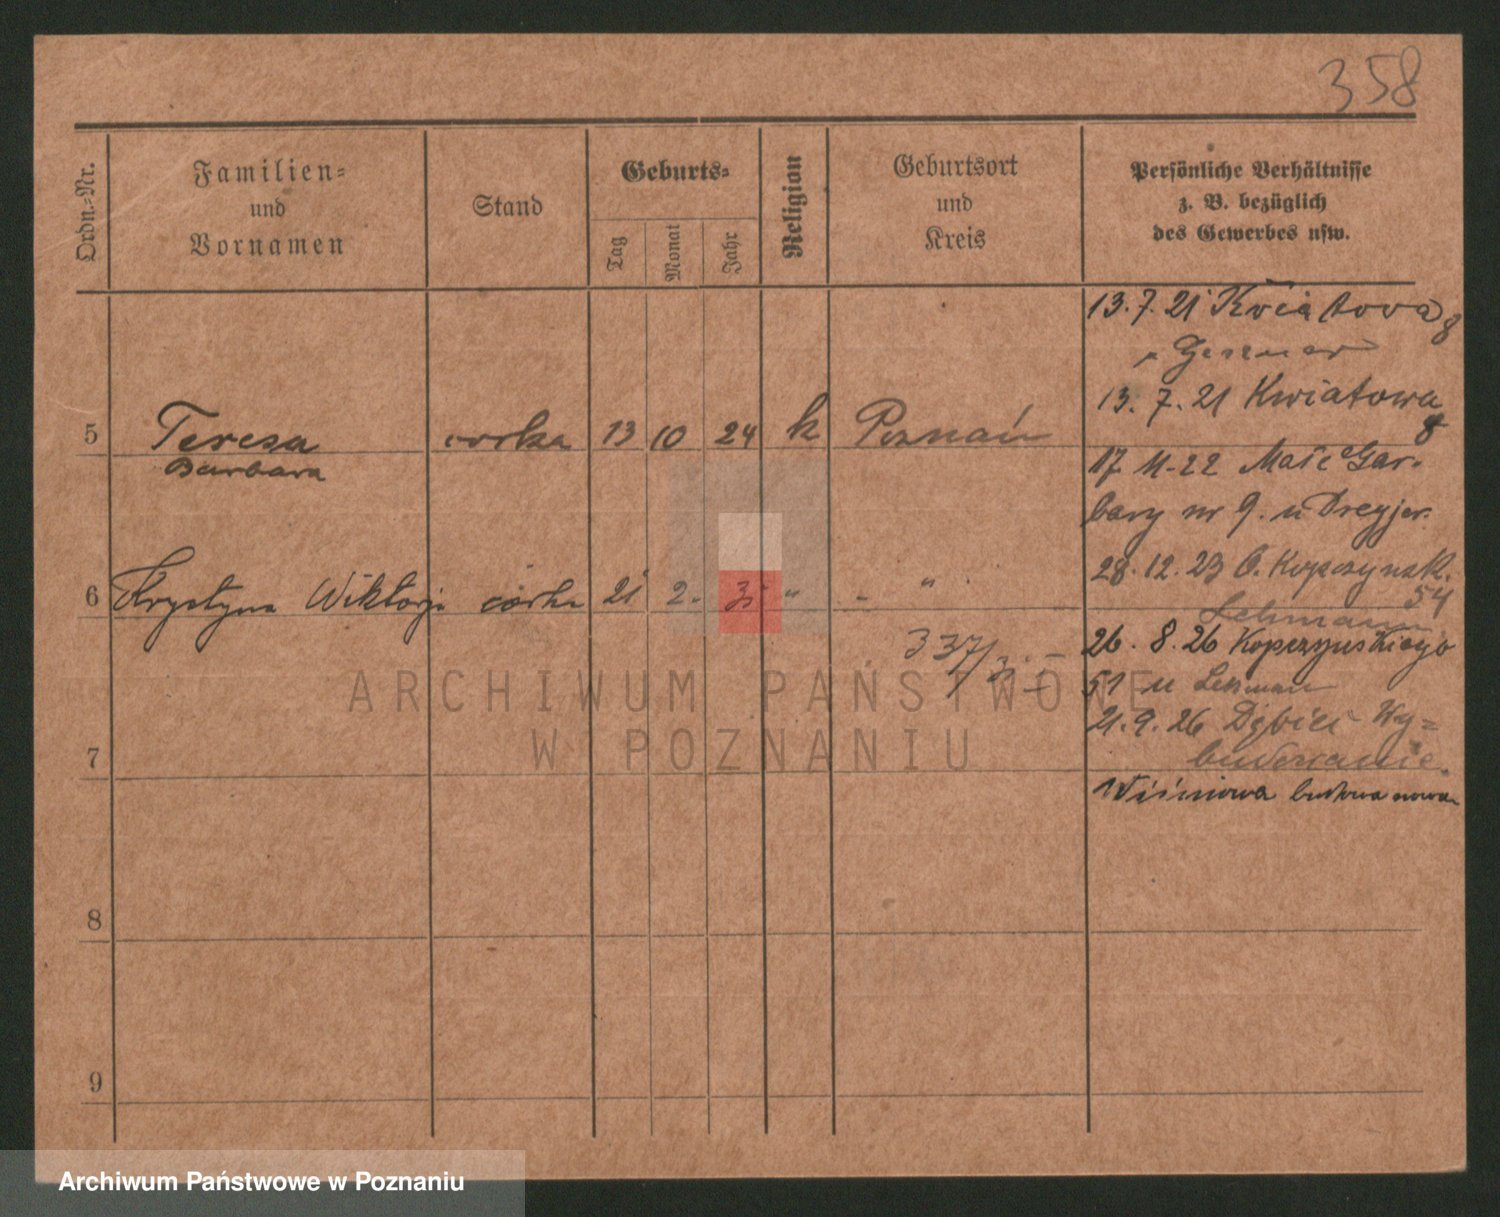 358
Ordn.-Nr.
Familien- und Vornamen
Stand
Geburts-
Tag
Monat
Jahr
Religion
Geburtsort und Kreis
Persönliche Verhältnisse
z. B. bezüglich
des Gewerbes usw.
13.7.21 Kwiatowa 8
13. 7. 21 Kwiatowa 8
5 Teresa corka 13 10 24 k Poznań
Barbara
17 11-22 Małe Gar-
bary nr 9. u Dreyjer.
28. 12. 23 O. Kopczynsk. 54
6 Krystyna Wiktorja córka 21 2. 31 " - "
Lehmann
337/31
26. 8. 26 Kopczynskiego
51 u Lehman
21. 9. 26 Dębiec Wy=
budowanie.
7
Wiśniowa budowa nowa
8
9
ARCHIWUM PAŃSTWOWE
W POZNANIU
Archiwum Państwowe w Poznaniu